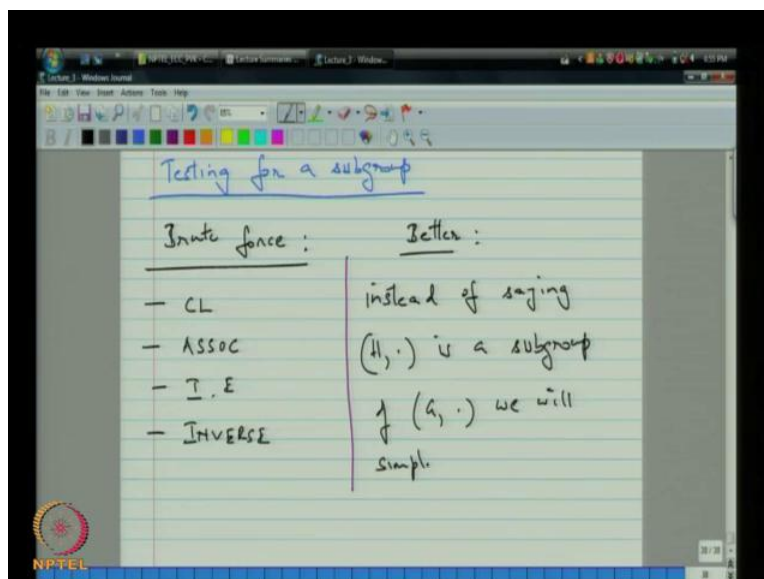 Lecture_3 - Windows Journal
File Edit View Insert Actions Tools Help
Testing for a subgroup
Brute force :
- CL
- ASSOC
- I.E
- INVERSE
Better :
instead of saying
(H, ·) is a subgroup
of (G, ·) we will
simpl
NPTEL